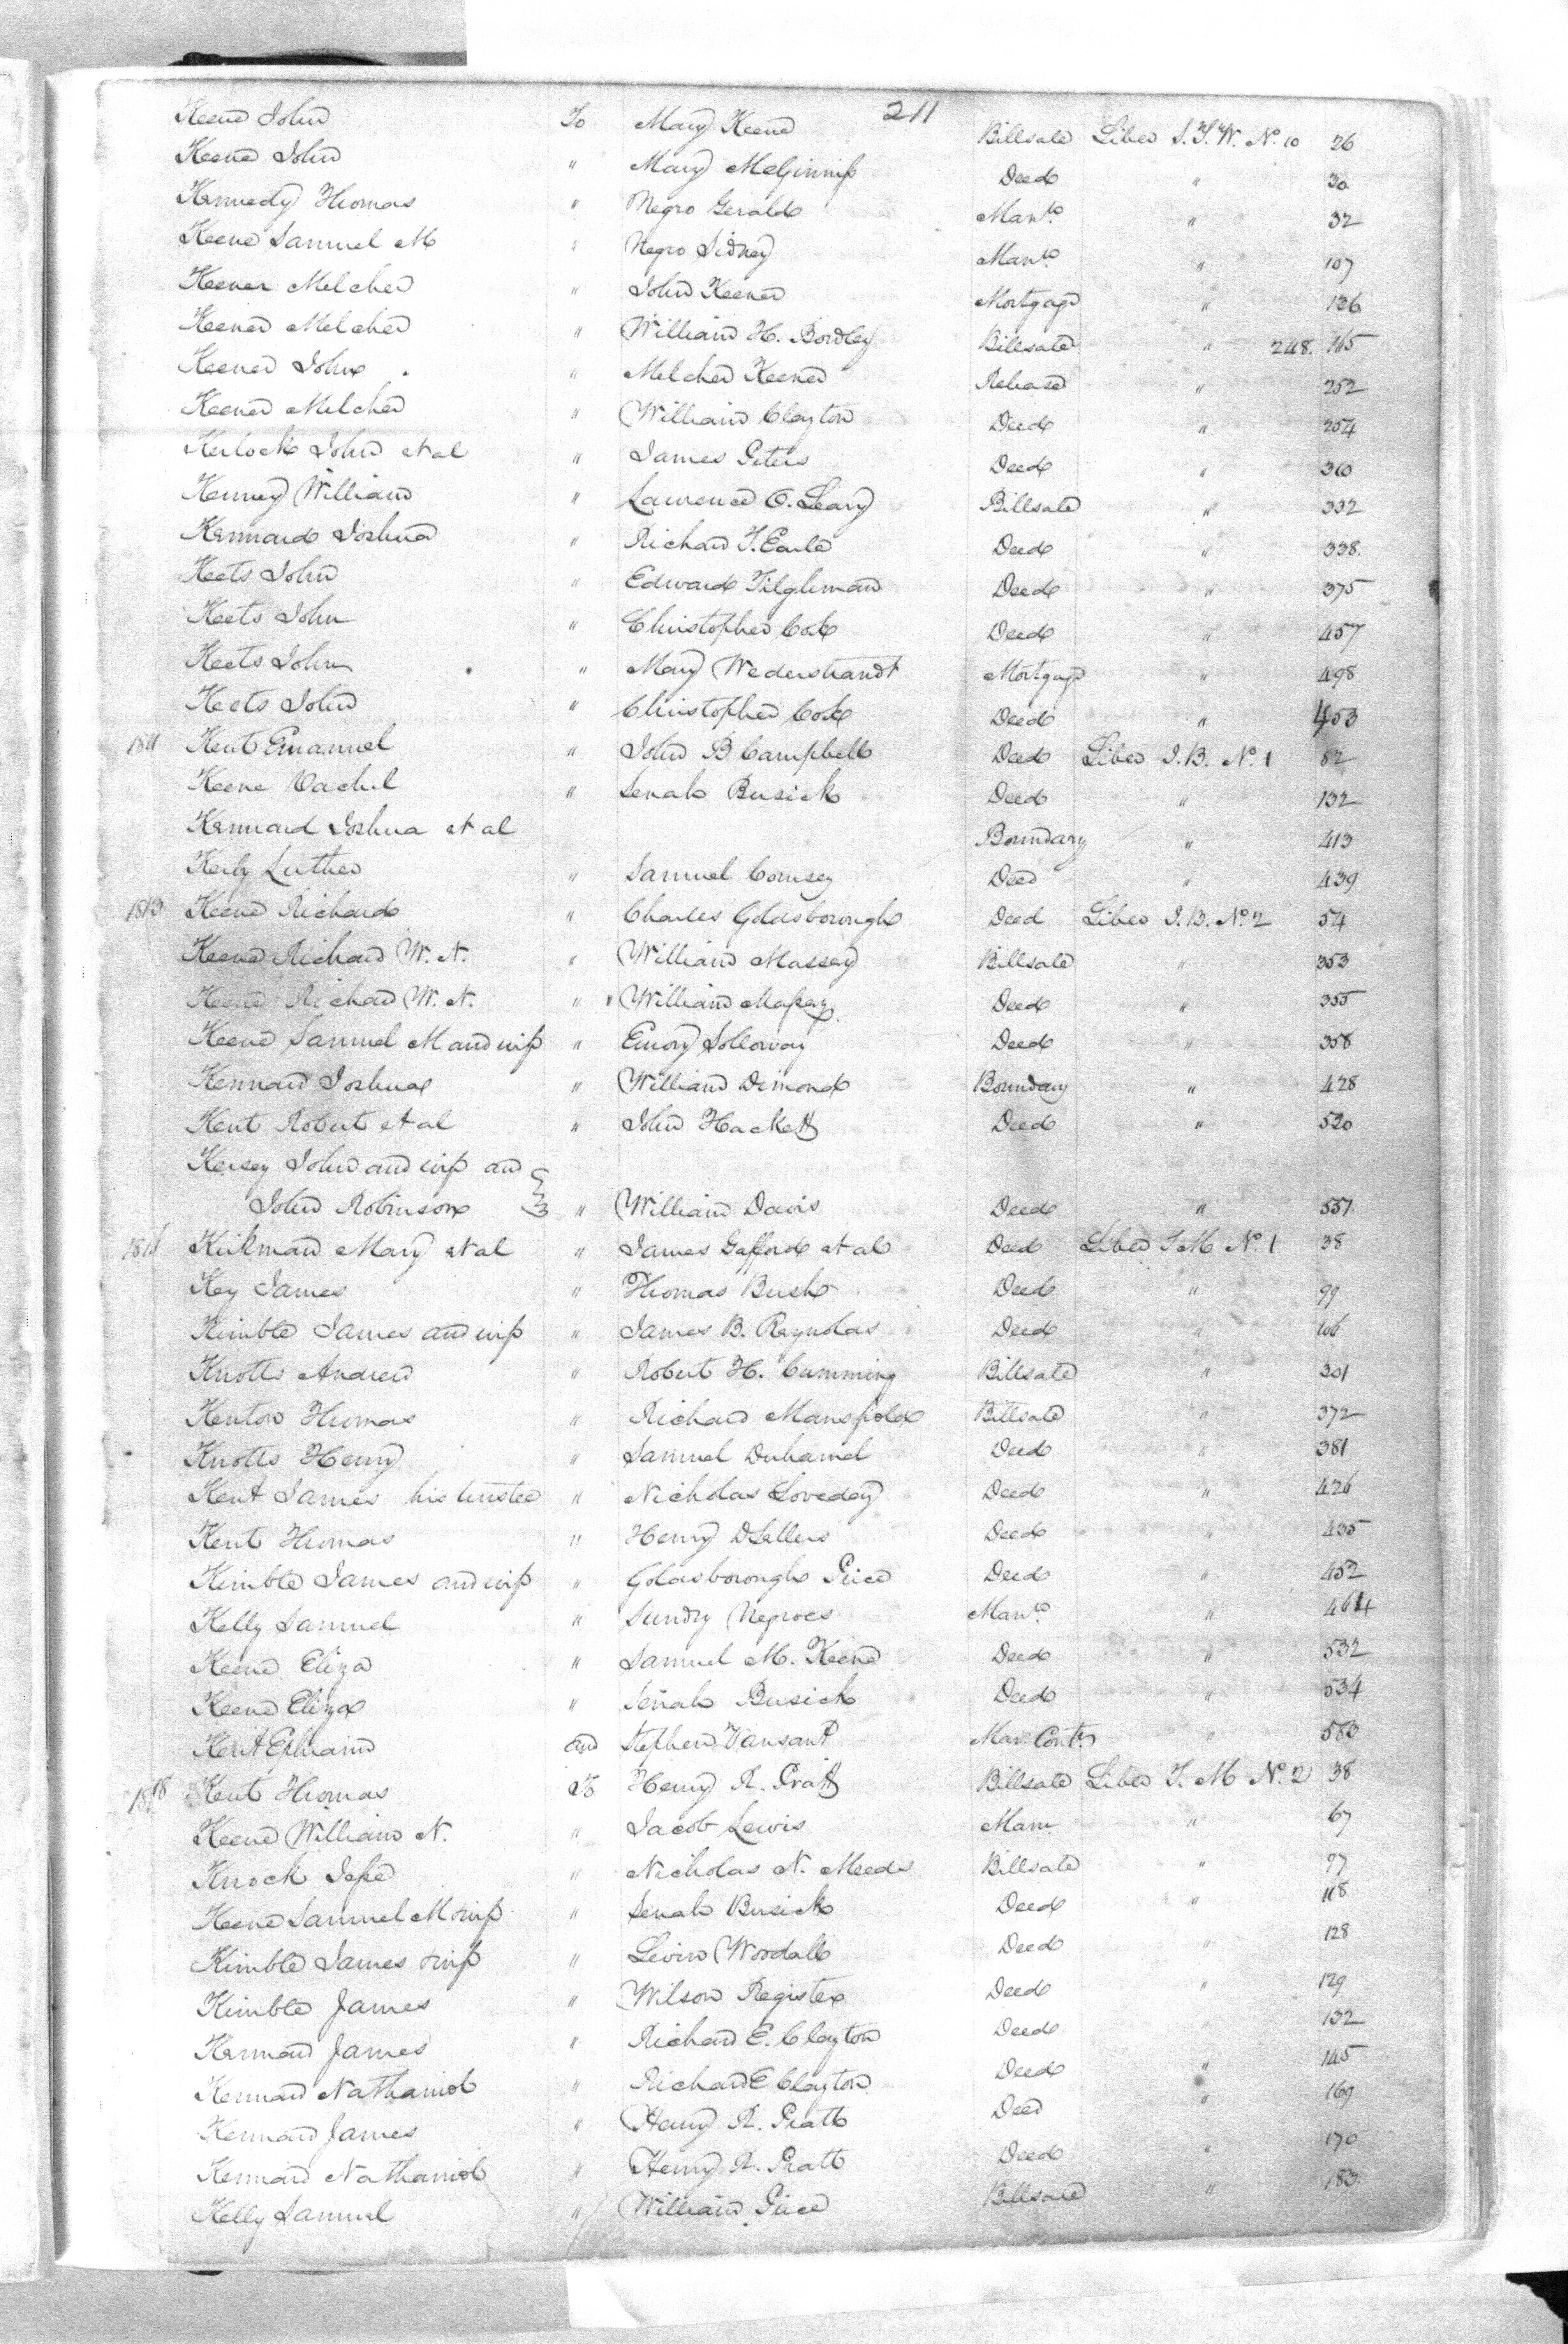 211
Keene John To Mary Keene Billsale Liber S.T.W. No. 10 26
Keene John " Mary McGinnis Deed " 30
Kennedy Thomas " Negro Gerald Manto. " 32
Keene Samuel M " Negro Sidney Manto. " 107
Keener Melcher " John Keener Mortgage " 136
Keener Melcher " William H. Bordley Billsale " 248. 165
Keener John " Melcher Keener Release " 252
Keener Melcher " William Clayton Deed " 254
Kerlock John et al " James Peters Deed " 310
Kenney William " Lawrence O. Leary Billsale " 332
Kennard Joshua " Richard T. Earle Deed " 338.
Keets John " Edward Tilghman Deed " 375
Keets John " Christopher Cox Deed " 457
Keets John " Mary Wederstrandt Mortgage " 498
Keets John " Christopher Cox Deed " 453
1811 Kent Emanuel " John B Campbell Deed Liber J.B. No. 1 82
Keene Vachel " Senah Busick Deed " 132
Kennard Joshua et al Boundary " 413
Kerby Luther " Samuel Comsey Deed " 439
1813 Keene Richard " Charles Goldsborough Deed Liber J.B. No. 2 54
Keene Richard W. N. " William Massey Billsale " 353
Keene Richard W. N. " " William Massey Deed " 355
Keene Samuel M and wife " Emory Solloway Deed " 358
Kennard Joshua " William Dimond Boundary " 428
Kent Robert et al " John Hackett Deed " 520
Kersey John and wife and
John Robinson " William Davis Deed " 551
Kirkman Mary et al " James Gafford et al Deed Liber T M No. 1 38
Key James " Thomas Bush Deed " 99
Kimble James and wife " James B. Reynolds Deed " 106
Knotts Andrew " Robert H. Cumming Billsale " 301
Kenton Thomas " Richard Mansfield Billsale " 372
Knotts Henry " Samuel Duhamel Deed " 381
Kent James his trustee " Nicholas Loveday Deed " 426
Kent Thomas " Henry D Sellers Deed " 435
Kimble James and wife " Goldsborough Price Deed " 452
Kelly Samuel " Sundry Negroes Manto. " 464
Keene Eliza " Samuel M. Keene Deed " 532
Keene Eliza " Senah Busick Deed " 534
Kent Ephraim and Stephen Vansant Mar. Contr. " 583
1818 Kent Thomas To Henry R. Pratt Billsale Liber T. M No. 2 38
Keene William N. " Jacob Lewis Manu " 67
Knock Jesse " Nicholas N. Meeds Billsale " 77
Keene Samuel M & wife " Senah Busick Deed " 118
Kimble James & wife " Levin Woodall Deed " 128
Kimble James " Wilson Register Deed " 129
Kennard James " Richard E. Clayton Deed " 132
Kennard Nathaniel " Richard E Clayton Deed " 145
Kennard James " Henry R. Pratt Deed " 169
Kennard Nathaniel " Henry R. Pratt Deed " 170
Kelly Samuel " William Price Billsale " 183